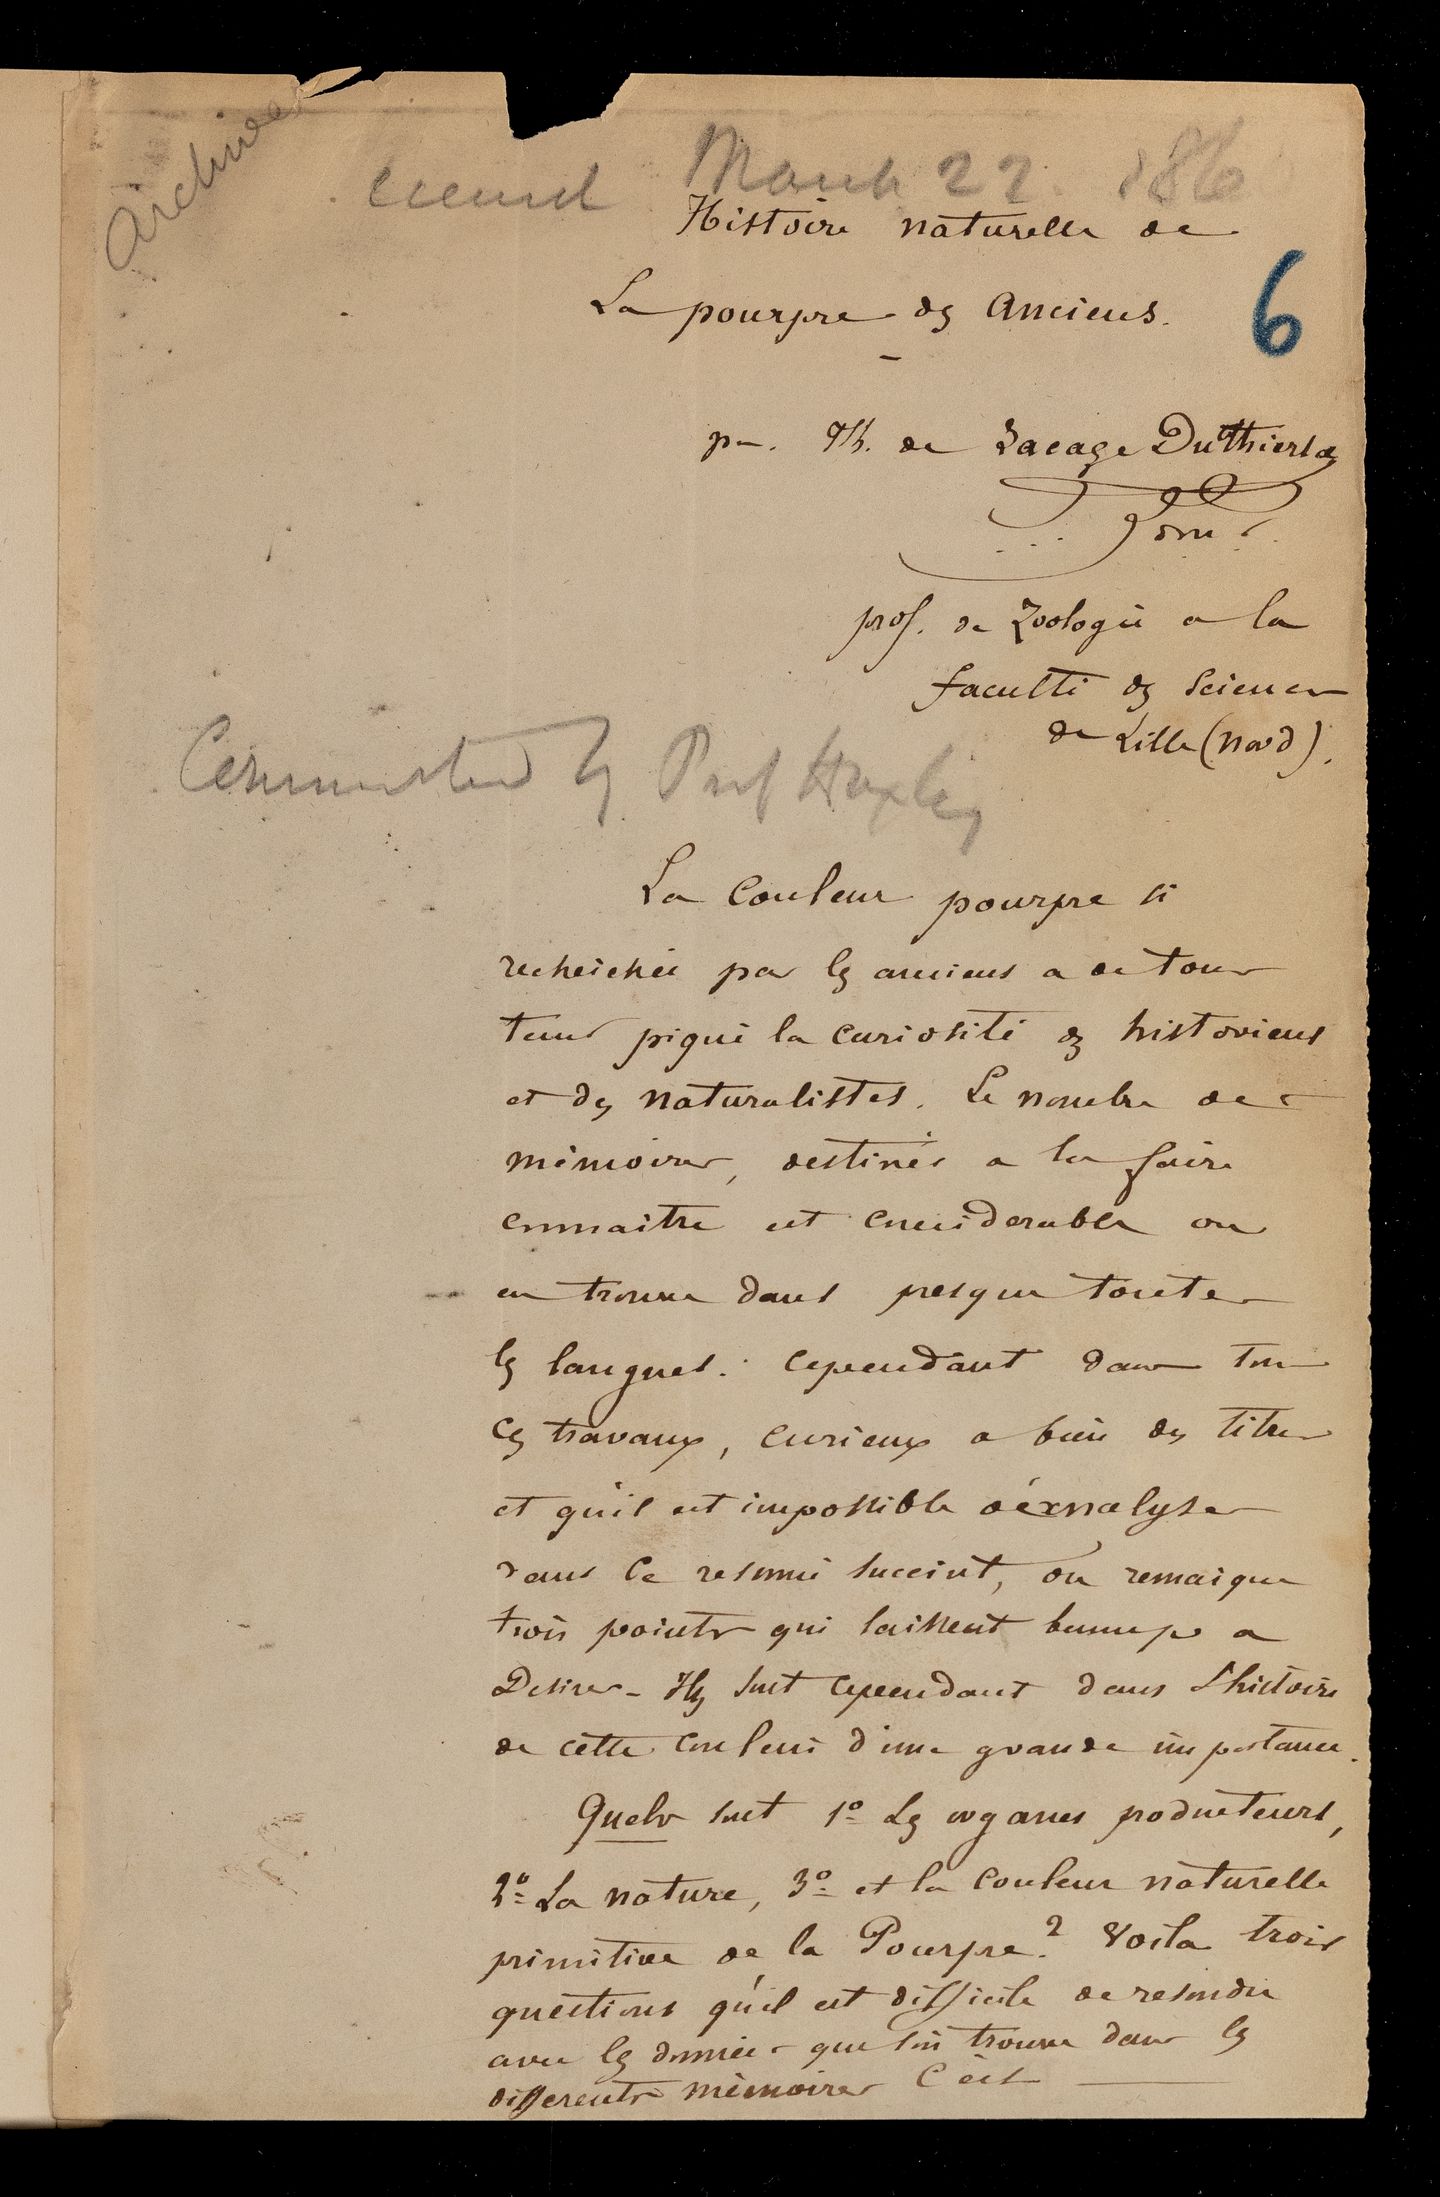 Archives
March 22. 186
Histoire naturelle de
La pourpre des Anciens.
6
par. Th. de Lacaze Duthiers
prof. de Zoologie a la
faculté des Sciences
de Lille (Nord).
Communicated by Prof Huxley
La Couleur pourpre si
recherchée par les anciens a de tout
tems piqué la curiosité des historiens
et des naturalistes. Le nombre de
mémoires, destinés a la faire
connaitre est considerable on
en trouve dans presque toutes
les langues. cependant dans tous
ces travaux, curieux a bien des titres
et qu'il est impossible d'analyser
dans ce resumé succint, on remarque
trois points qui laissent beaucoup a
Desirer - Ils sont cependant dans l'histoire
de cette couleur d'une grande importance.
Quels sont 1º Les organes producteurs,
2º La nature, 3º et la couleur naturelle
primitive de la Pourpre? Voila trois
questions qu'il est difficile de resoudre
avec les données que l'on trouve dans les
differents mémoires C'est